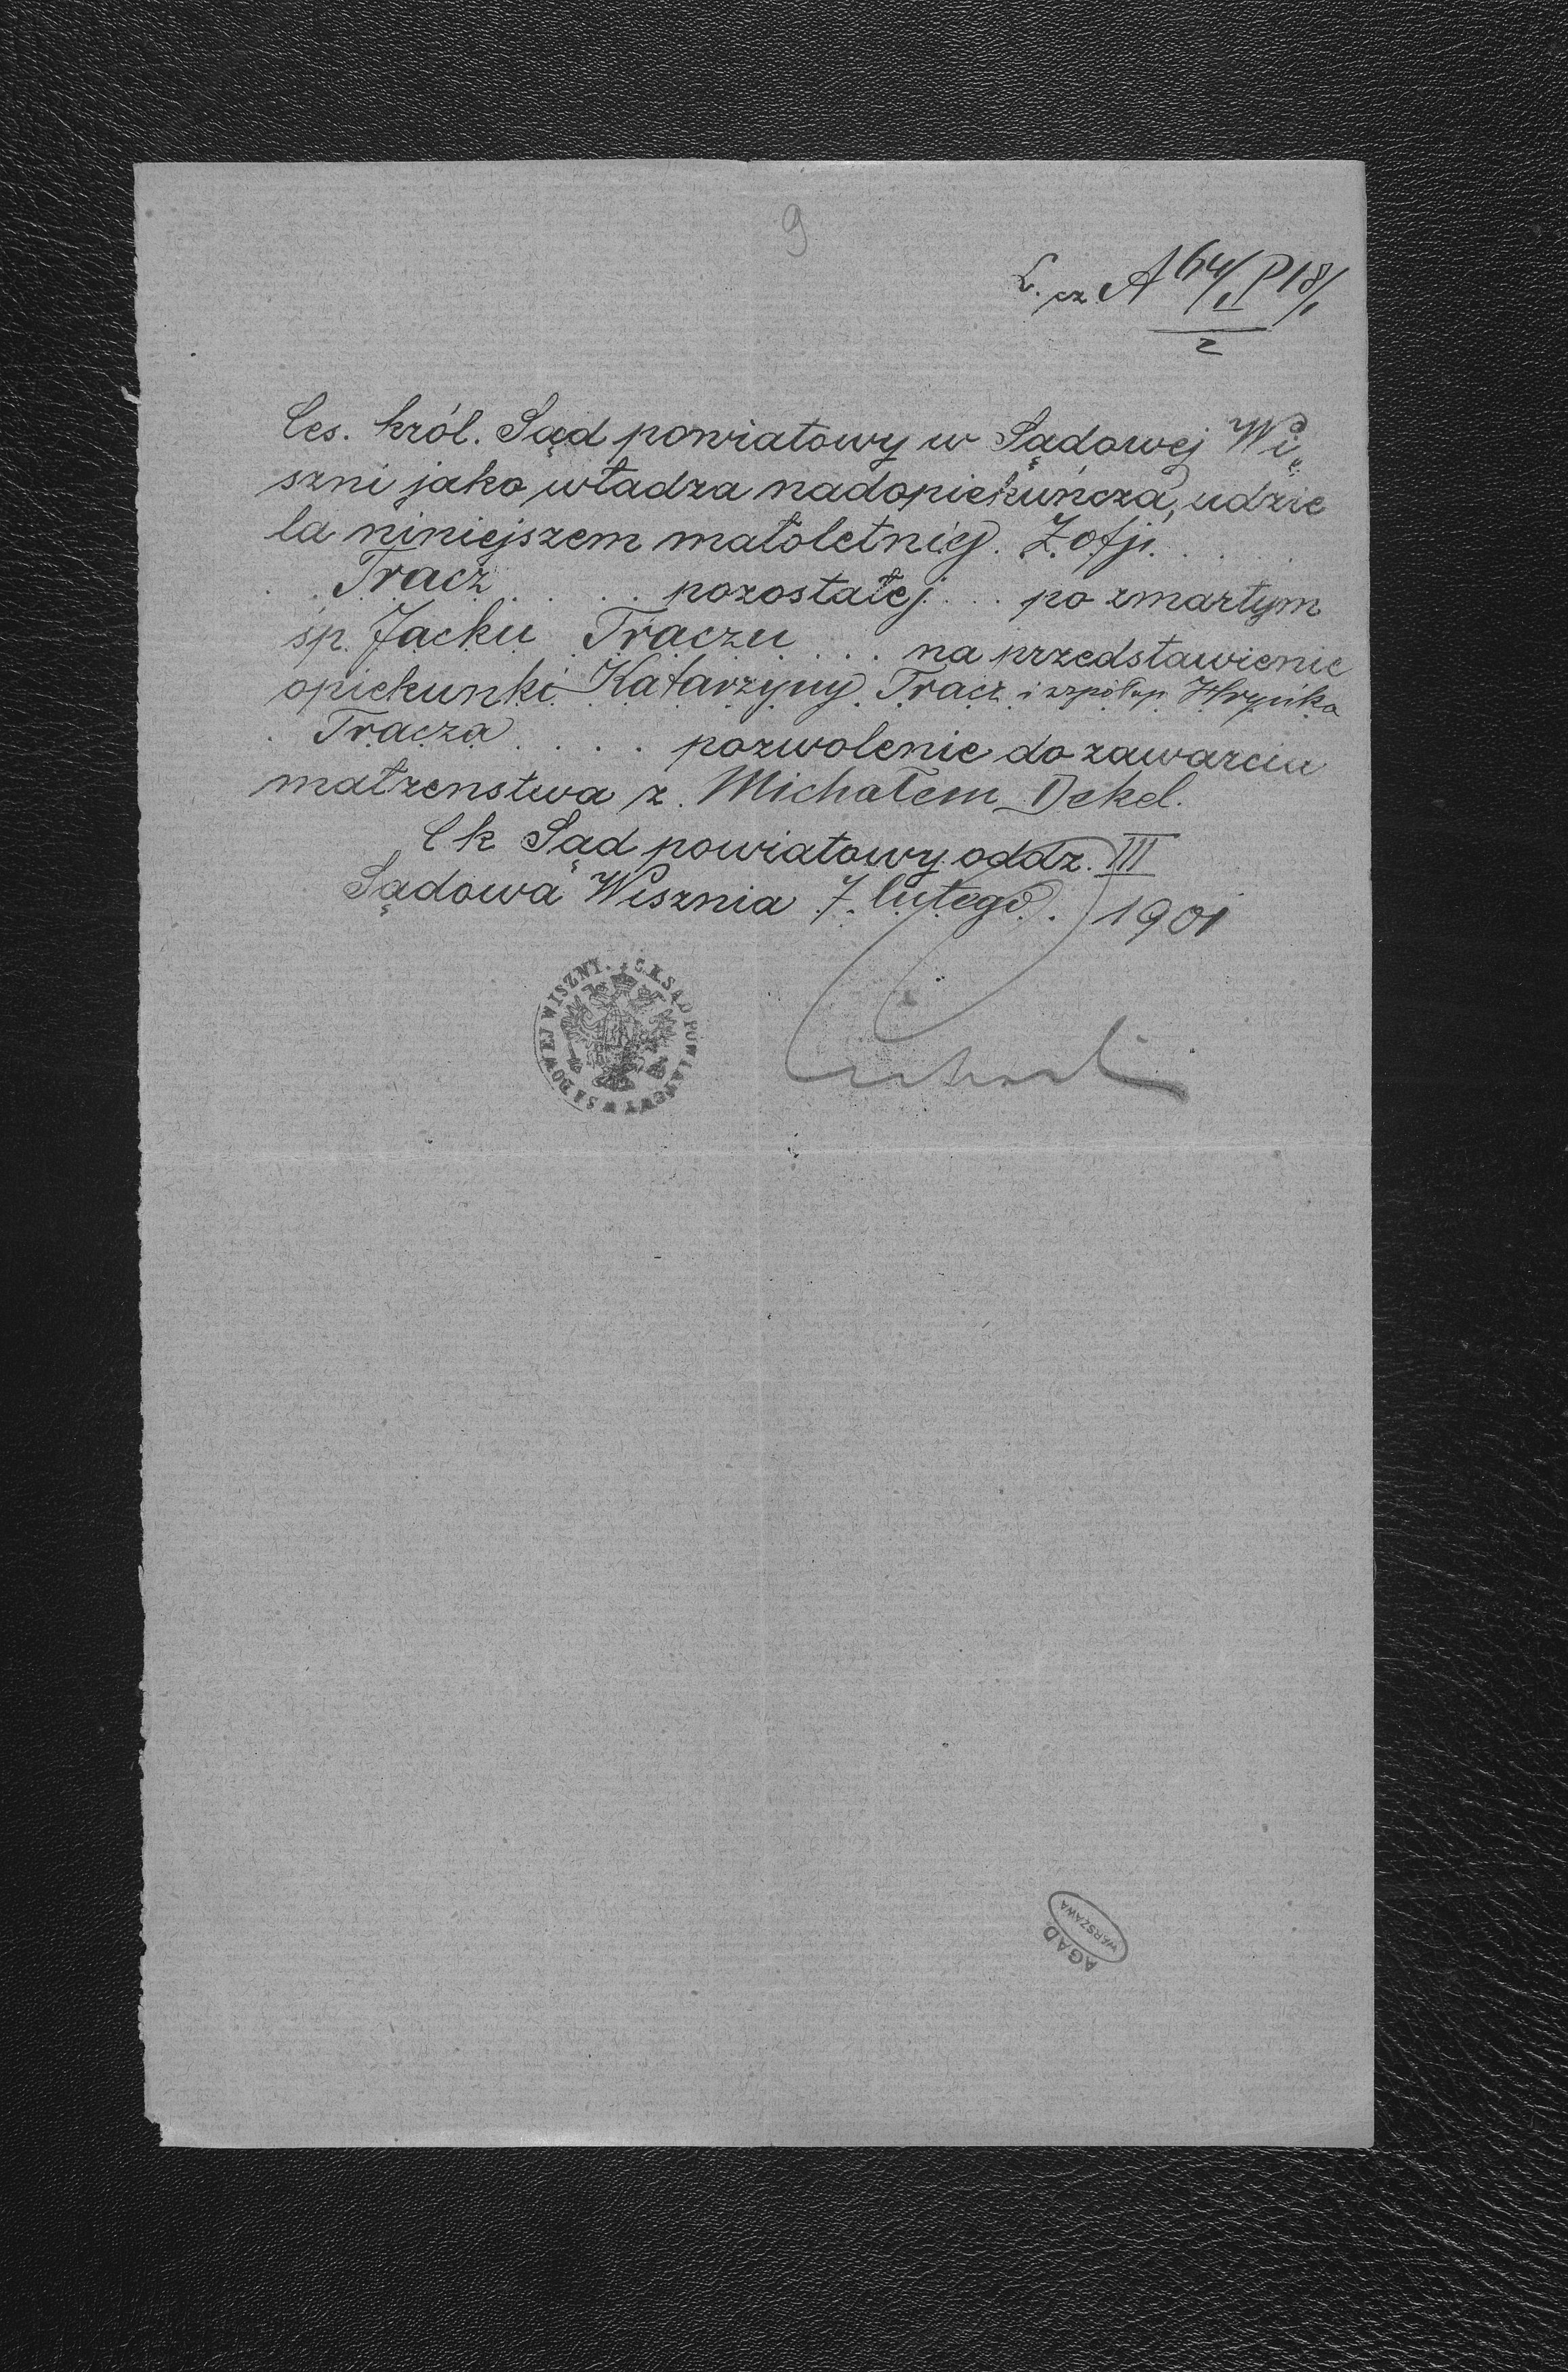 9
L. cz A 64/1 P 18/1
2
Ces. król. Sąd powiatowy w Sądowej Wi„
szni jako władza nadopiekuńcza, udzie
la niniejszem małoletniej. Zofji. . . .
. . Tracz . . . . . pozostałej . . . po zmarłym
śp. Jacku Traczu . . . na przedstawienie
opiekunki Katarzyny Tracz i współop. Hryńka
. Tracza . . . . pozwolenie do zawarcia
małżenstwa z. Michałem Dekel.
C k Sąd powiatowy oddz. III
Sądowa Wisznia 7. lutego . 1901
C.K. SĄD POWIATOWY W SĄDOWEJ WISZNI.
AGAD
WARSZAWA